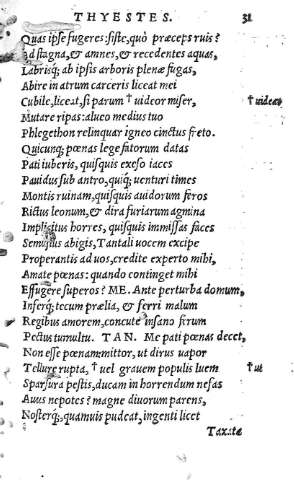 THYESTES. 31
Quas ipse fugeres: siste, quò præceps ruis?
Ad stagna, & amnes, & recedentes aquas,
Labrisq; ab ipsis arboris plenæ fugas,
Abire in atrum carceris liceat mei
Cubile, liceat, si parum † uideor miser, † uidear
Mutare ripas: alueo medius tuo
Phlegethon relinquar igneo cinctus freto.
Quicunq; pœnas lege fatorum datas
Pati iuberis, quisquis exeso iaces
Pauidus sub antro, quiq; uenturi times
Montis ruinam, quisquis auidorum feros
Rictus leonum, & dira furiarum agmina
Implicitus horres, quisquis immissas faces
Semiustus abigis, Tantali uocem excipe
Properantis ad uos, credite experto mihi,
Amate pœnas: quando continget mihi
Effugere superos? ME. Ante perturba domum,
Inferq; tecum prælia, & ferri malum
Regibus amorem, concute insano ferum
Pectus tumultu. TAN. Me pati pœnas decet,
Non esse pœnam: mittor, ut dirus uapor
Tellure rupta, † uel grauem populis luem † ut
Sparsura pestis, ducam in horrendum nefas
Auus nepotes? magne diuorum parens,
Nosterq;, quamuis pudeat, ingenti licet
Taxata